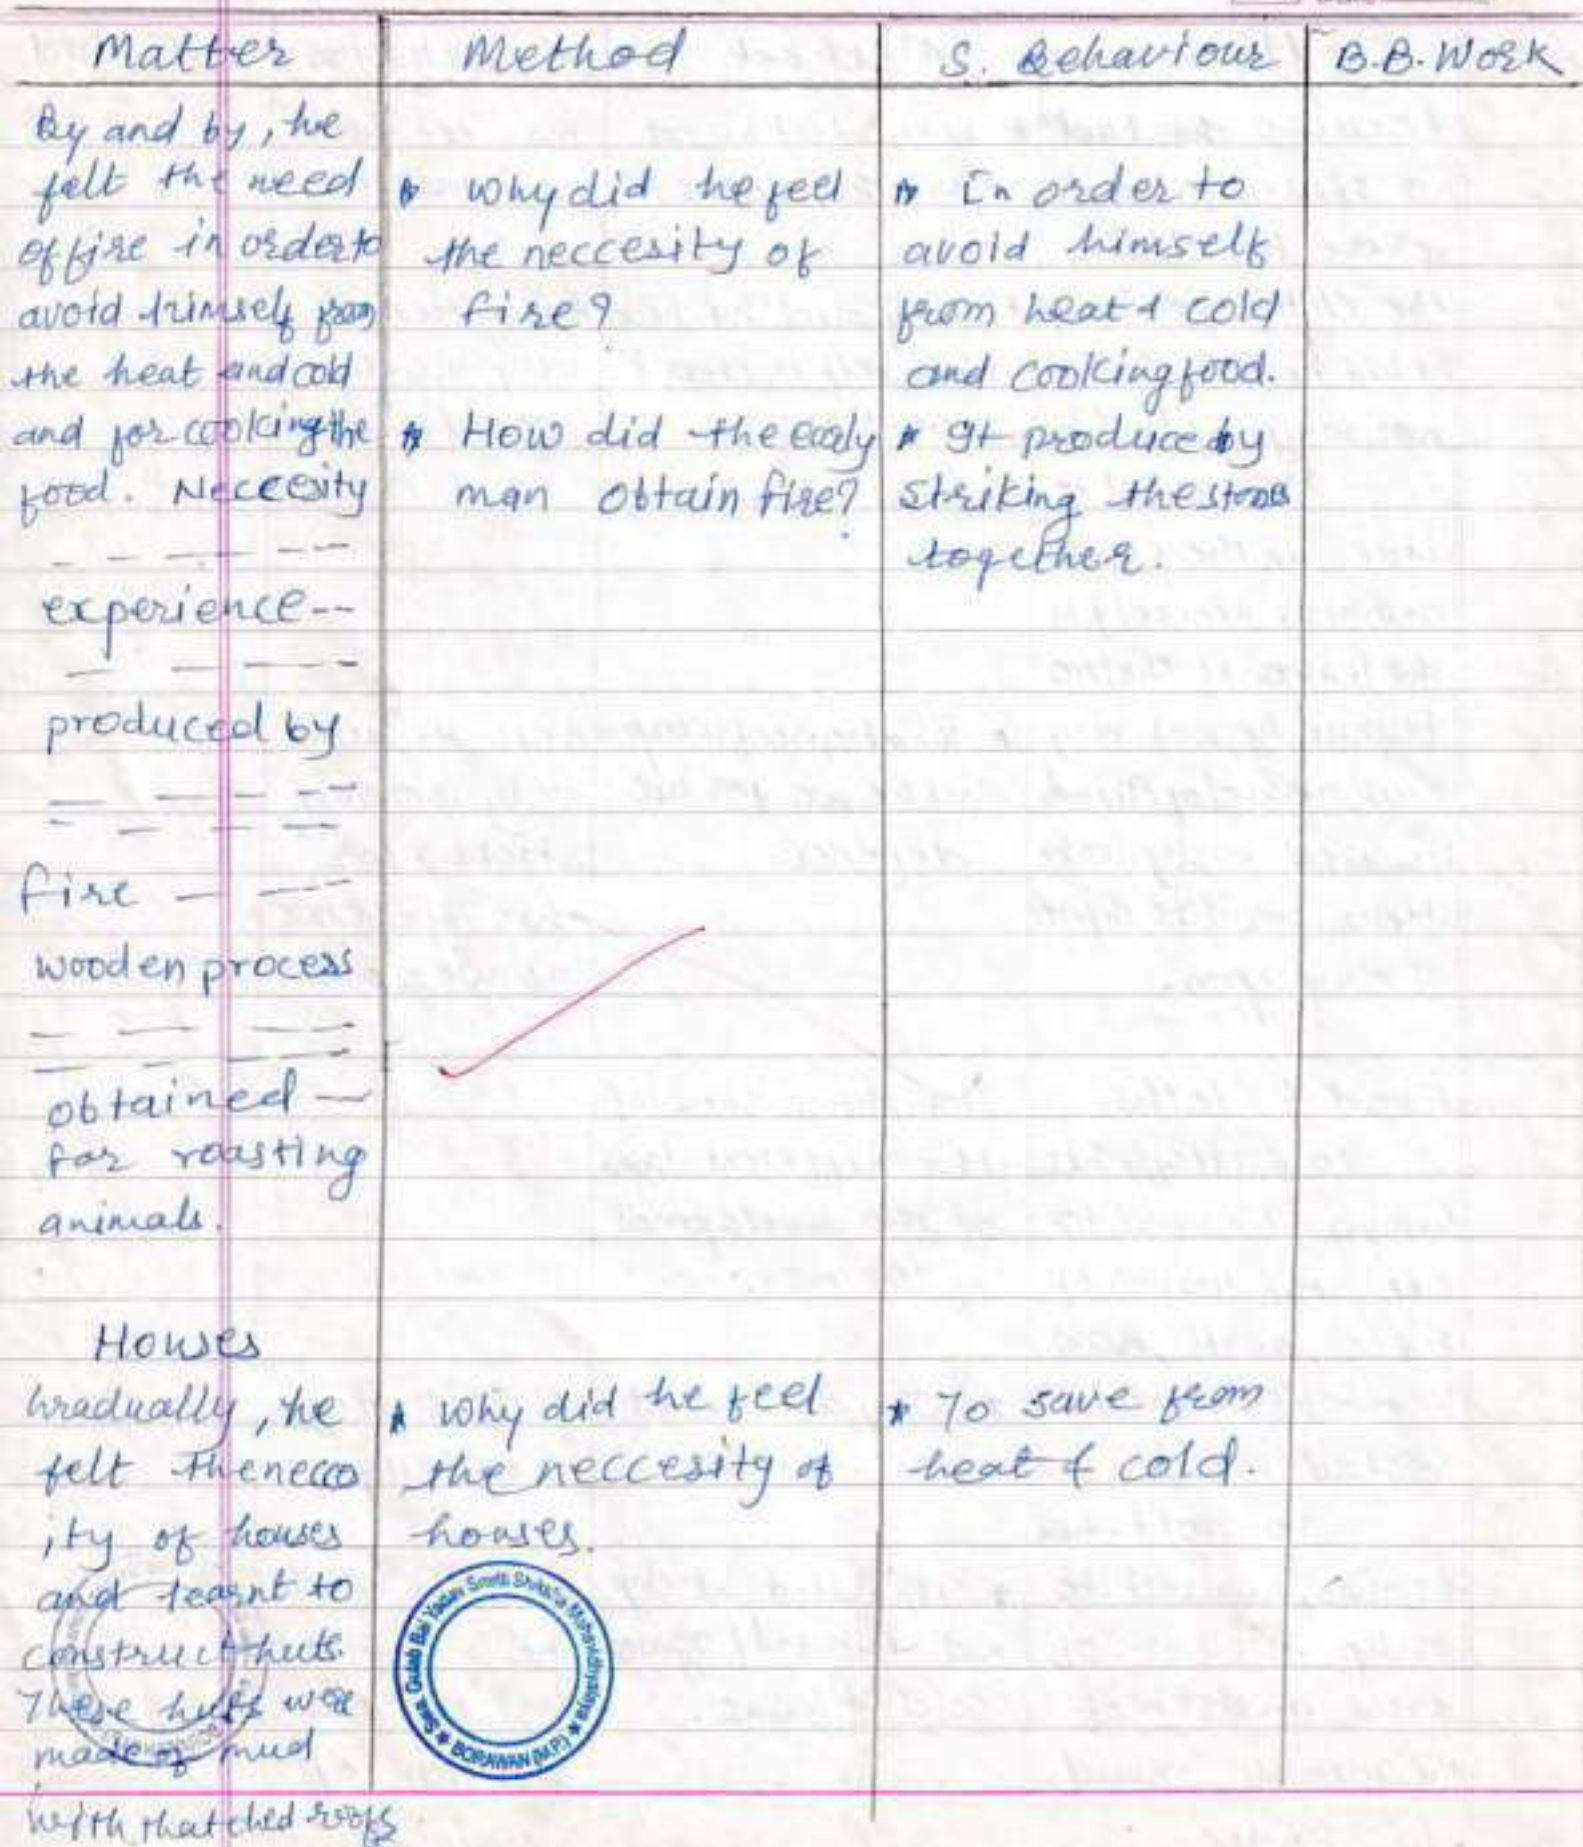 Matter
Method
S. Behaviour
B.B. Work
By and by, he
felt the need
of fire in order to
avoid himself from
the heat and cold
and for cooking the
food. Neccesity
experience--
produced by
fire
wooden process
obtained
for roasting
animals.
* why did he feel
the neccesity of
fire?
* How did the early
man obtain fire?
* In order to
avoid himself
from heat & cold
and cooking food.
* It produce by
striking the stones
together.
Houses
Gradually, he
felt the necce
ity of houses
and learnt to
construct huts.
These huts were
made of mud
with thatched roofs.
* Why did he feel
the neccesity of
houses.
* To save from
heat & cold.
Gulab Bai Yadav Smriti Shiksha Mahavidhyalaya
BORAWAN (M.P.)